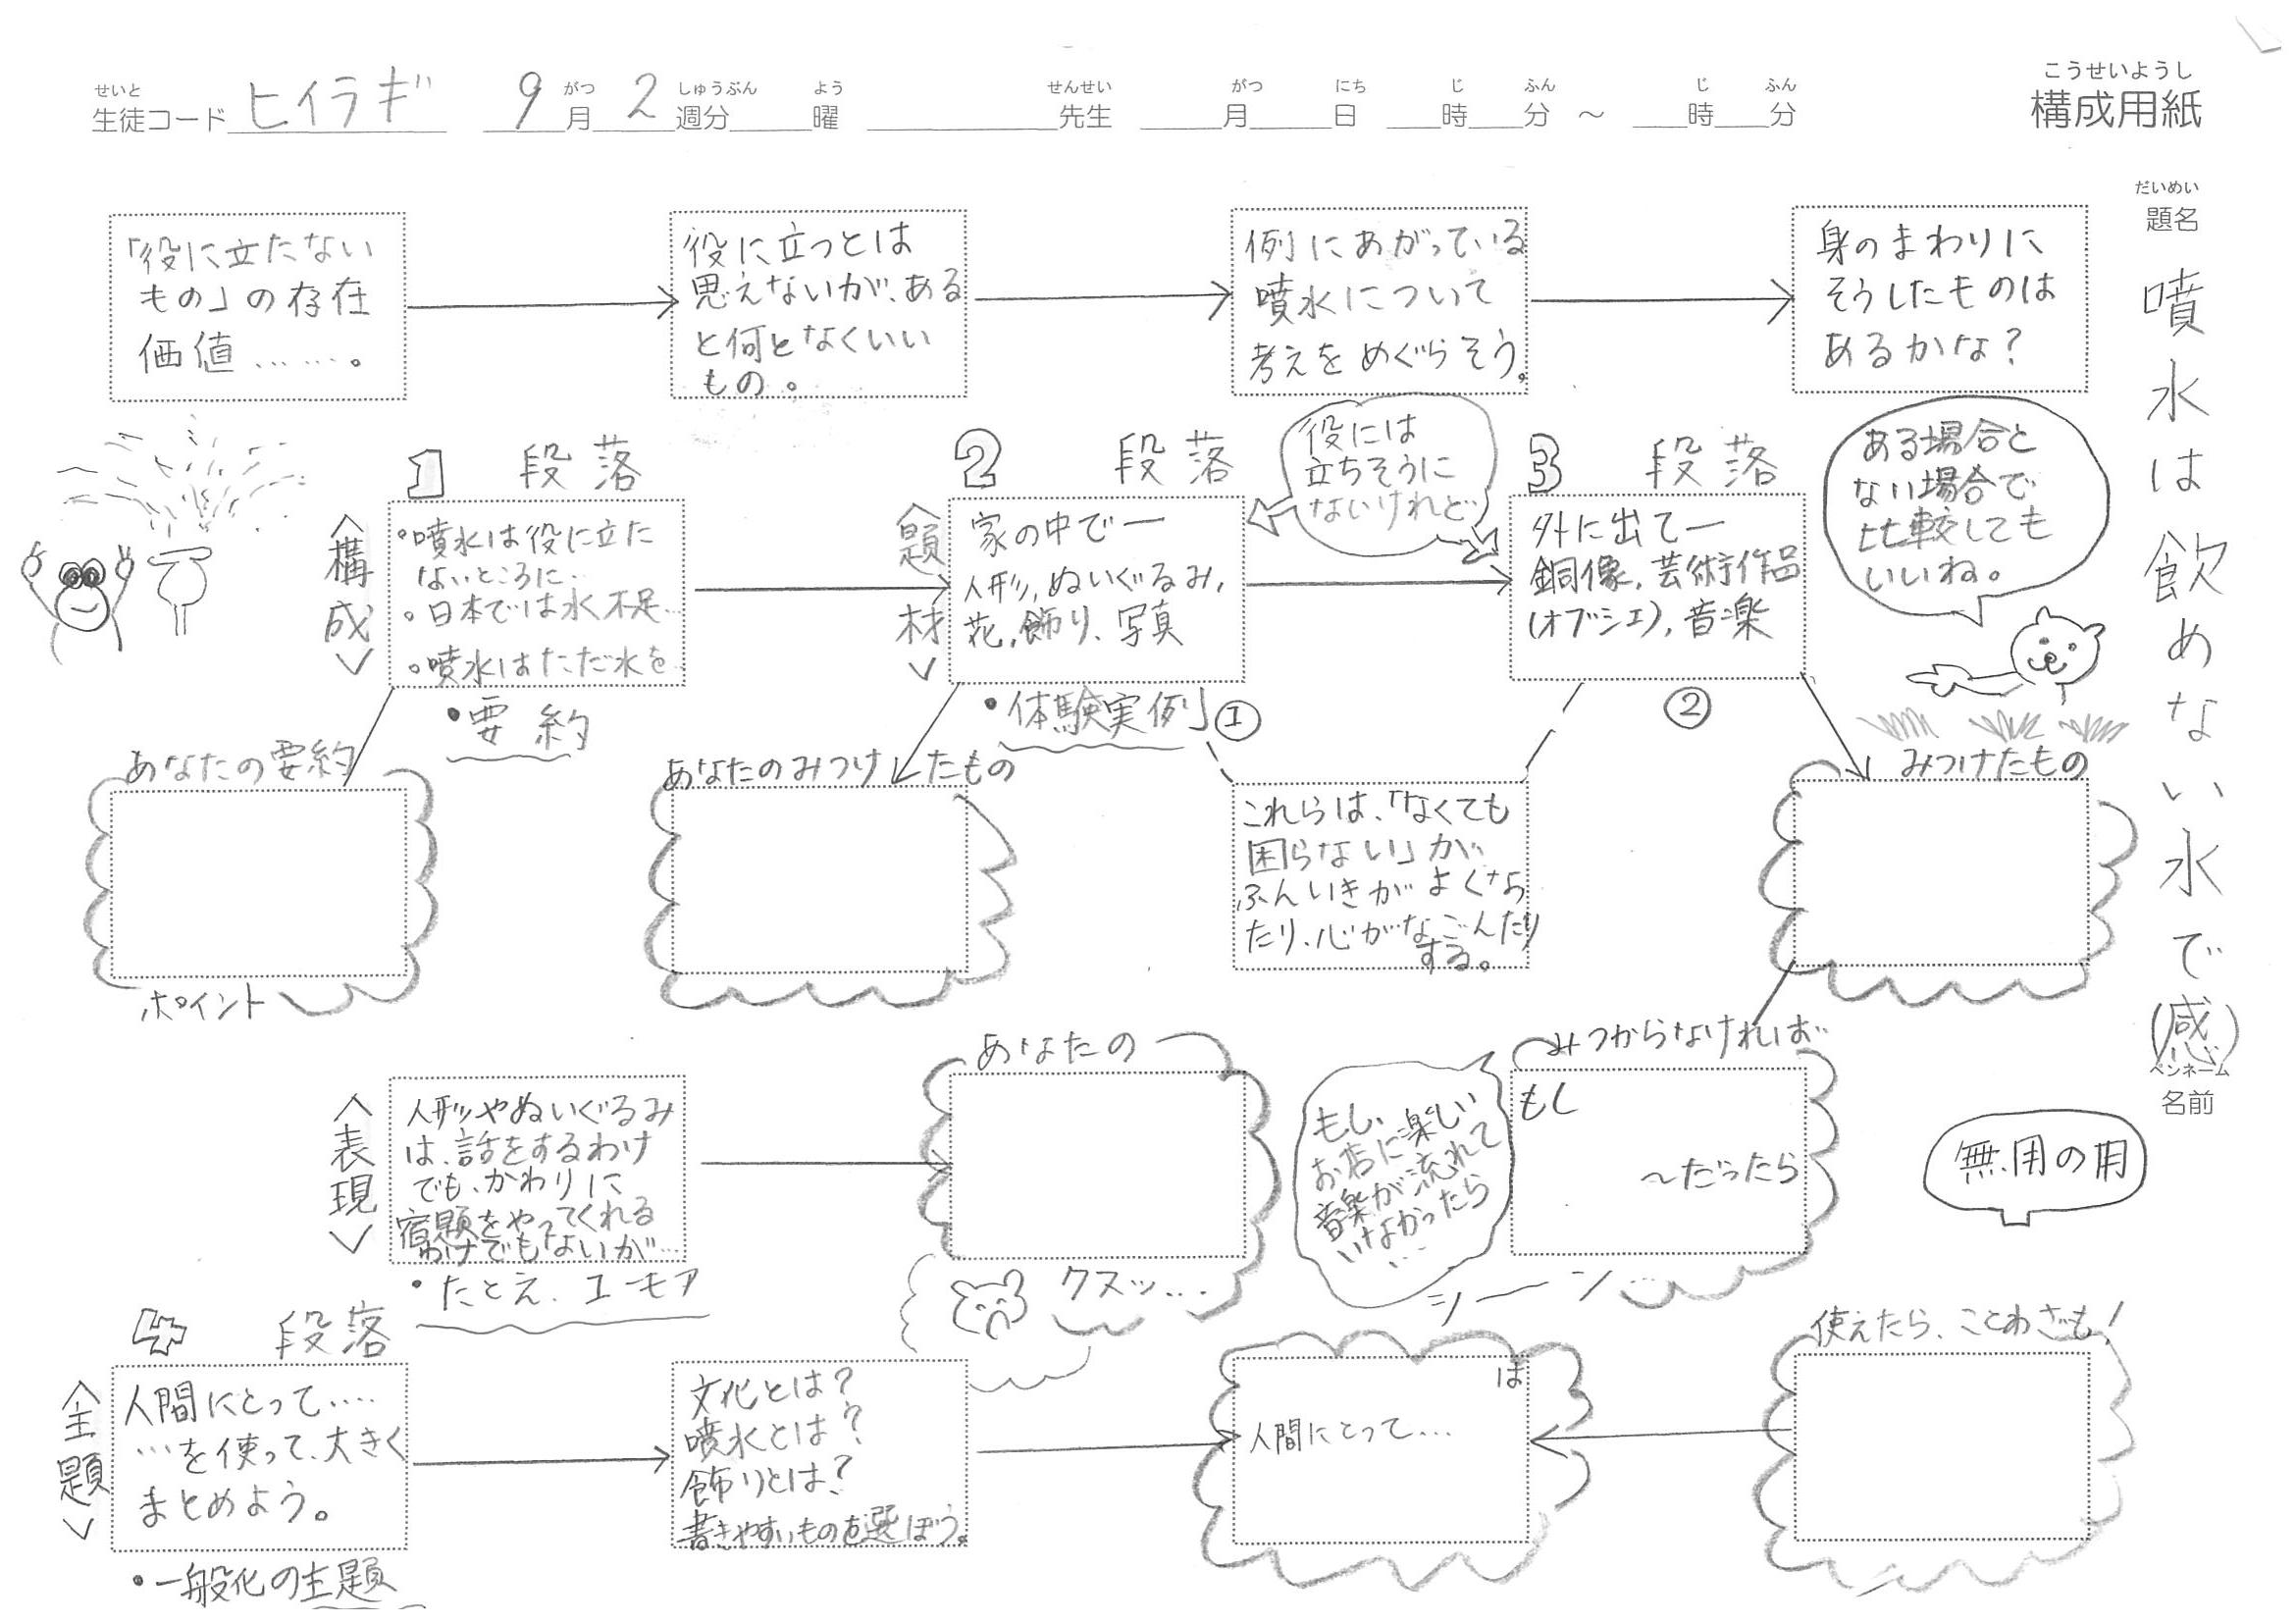 せいと がつ しゅうぶん よう せんせい がつ にち じ ふん じ ふん
生徒コード ヒイラギ 9月 2週分 曜 先生 月 日 時 分 ～ 時 分
こうせいようし
構成用紙
だいめい
題名
噴水は飲めない水で(感)
ペンネーム
名前
「役に立たない
もの」の存在
価値……。
役に立つとは
思えないが、ある
と何となくいい
もの。
例にあがっている
噴水について
考えをめぐらそう。
身のまわりに
そうしたものは
あるかな?
1 段落
<構成>
・噴水は役に立た
ないところに..
。日本では水不足...
。噴水はただ水を..
・要約
2 段落
<題材>
家の中でー
人形,ぬいぐるみ,
花,飾り、写真
・体験実例①
役には
立ちそうに
ないけれど
3 段落
外に出てー
銅像,芸術作品
(オブジェ),音楽
②
ある場合と
ない場合で
比較しても
いいね。
あなたの要約
ポイント
あなたのみつけたもの
これらは、「なくても
困らない」が
ふんいきがよくなっ
たり、心がなごんだり
する。
みつけたもの
<表現>
人形やぬいぐるみ
は、話をするわけ
でも、かわりに
宿題をやってくれる
わけでもないが…
・たとえ、ユーモア
あなたの
クスッ...
もし、
お店に楽しい
音楽が流れて
いなかったら
...
みつからなければ
もし
～だったら
シーーン...
無用の用
4 段落
<主題>
人間にとって....
…を使って、大きく
まとめよう。
・一般化の主題
文化とは?
噴水とは?
飾りとは?
書きやすいものを選ぼう。
は
人間にとって...
使えたら、ことわざも!